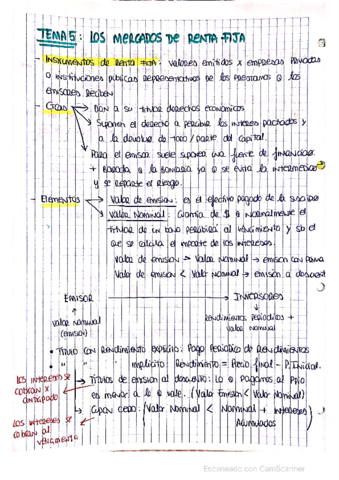 TEMA 5: LOS MERCADOS DE RENTA FIJA
- INSTRUMENTOS DE RENTA FIJA: valores emitidos x empresas privadas
o instituciones públicas representativos de los préstamos q los
emisores reciben
- Dan a su titular derechos económicos
Suponen el derecho a percibir los intereses pactados y
a la devoluc de todo/parte del capital.
Para el emisor: suele suponer una fuente de financiac
+ barata q la bancaria ya q se evita la intermediac
y se reparte el riesgo.
- Elementos Valor de emisión: es el efectivo pagado de la suscripc
Valor Nominal: Cuantía de $ q normalmente el
titular de un bono percibirá al vencimiento y sb el
que se calcula el importe de los intereses.
Valor de emisión > Valor Nominal → emisión con prima
Valor de emisión < Valor Nominal → emisión a descuent
EMISOR → INVERSORES
valor nominal
(emisión)
Rendimientos periódicos +
valor nominal
• TÍTULO CON RENDIMIENTO EXPLÍCITO: Pago Periódico de Rendimientos
• " " " implícito: Rendimiento = Precio final - P. Inicial.
LOS INTERESES SE
COBRAN X
ANTICIPADO
→ Títulos de emisión al descuento: Lo q pagamos al ppio
es menor a lo q vale. (Valor Emisión < Valor Nominal)
→ Cupón cero: (Valor Nominal < Nominal + intereses)
Acumulados
LOS INTERESES SE
COBRAN AL
VENCIMIENTO
Escaneado con CamScanner